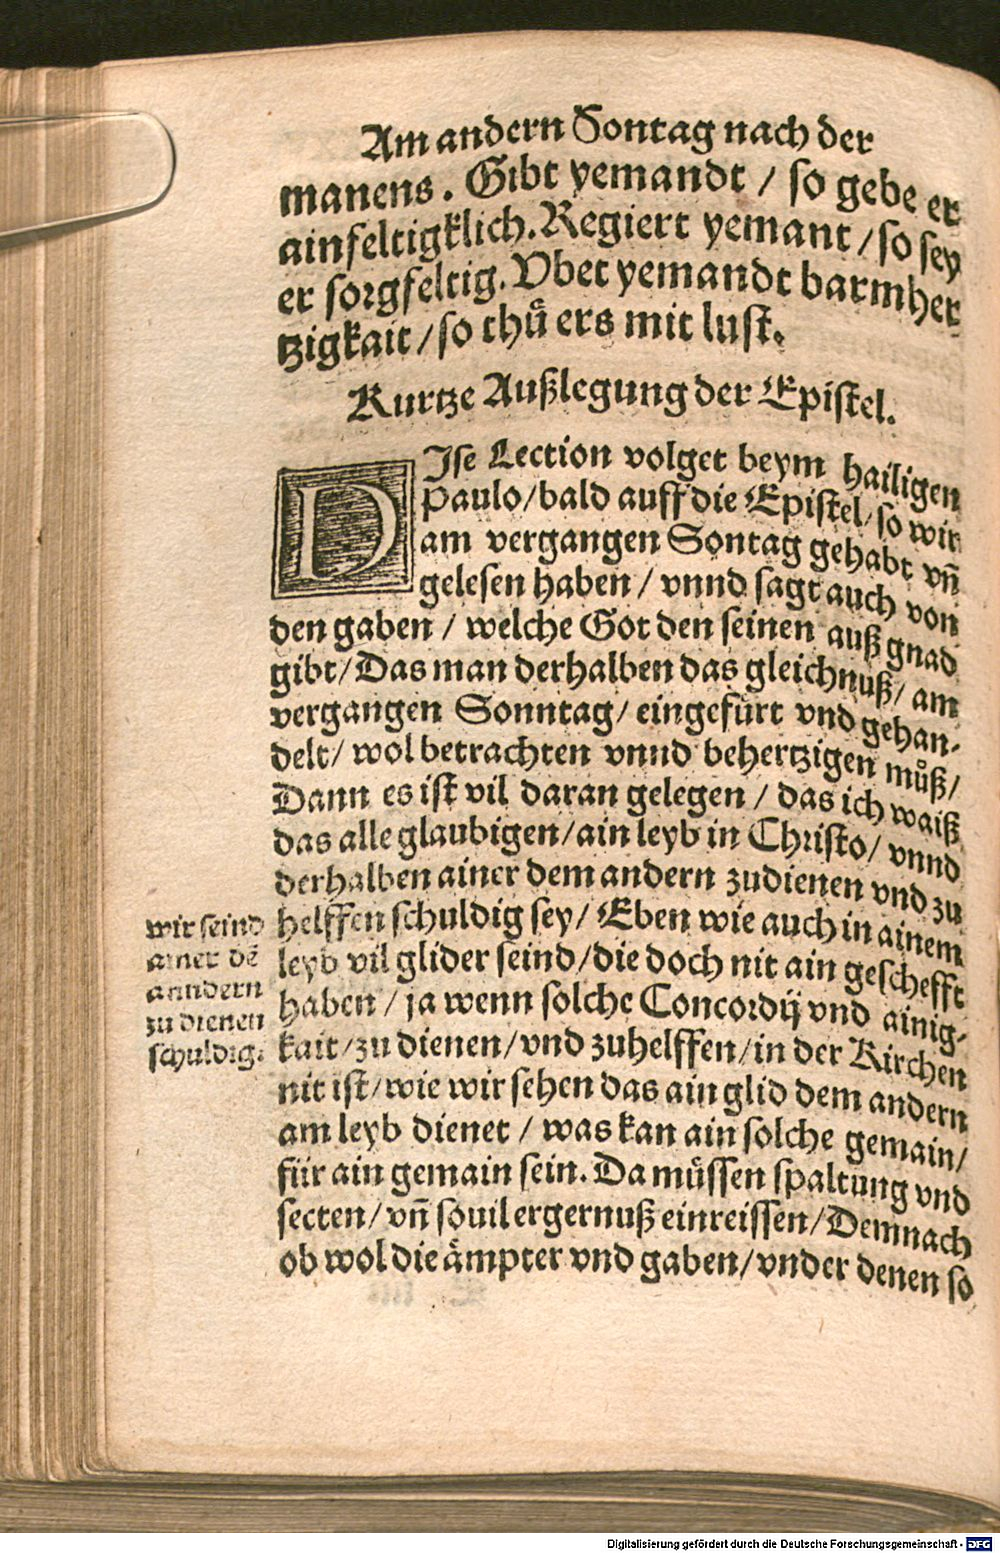 Am andern Sontag nach der
manens. Gibt yemandt / so gebe er
ainfeltigklich. Regiert yemant / so sey
er sorgfeltig. Vbet yemandt barmher
tzigkait / so thuͦ ers mit lust.
Kurtze Außlegung der Epistel.
DIse Lection volget beym hailigen
Paulo / bald auff die Epistel / so wir
am vergangen Sontag gehabt vñ
gelesen haben / vnnd sagt auch von
den gaben / welche Got den seinen auß gnad
gibt / Das man derhalben das gleichnuß / am
vergangen Sonntag / eingefürt vnd gehan-
delt / wol betrachten vnnd behertzigen muͦß /
Dann es ist vil daran gelegen / das ich waiß
das alle glaubigen / ain leyb in Christo / vnnd
derhalben ainer dem andern zudienen vnd zu
helffen schuldig sey / Eben wie auch in ainem
leyb vil glider seind / die doch nit ain geschefft
haben / ja wenn solche Concordij vnd ainig-
kait / zu dienen / vnd zuhelffen / in der Kirchen
nit ist / wie wir sehen das ain glid dem andern
am leyb dienet / was kan ain solche gemain /
für ain gemain sein. Da müssen spaltung vnd
secten / vñ souil ergernuß einreissen / Demnach
ob wol die ämpter vnd gaben / vnder denen so
wir seind
ainer dē
anndern
zu dienen
schuldig.
Digitalisierung gefördert durch die Deutsche Forschungsgemeinschaft - DFG